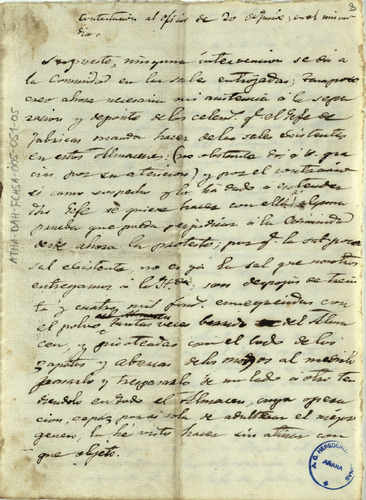 8
Contestacion al oficio de 20 de Junio, en el mismo
dia.
Supuesto, ninguna intervencion se dió a
la Comunidad en las sales entrojadas; tampoco
creo ahora necesaria mi asistencia á la sepa
racion y deposito de los celem.s q.e el Gefe de
fabricas manda hacer de las sales existentes
en estos Almacenes: (no obstante doi á V. gra
cias por su atencion) y por el contrario
si como sospecho y lo ha dado a entender
dho Gefe se quiere hacer con ellas alguna
prueba que pueda perjudicar á la Comunidad
desde ahora la protesto; por q.e la sal
sal existente, no es ya la sal que nosotros
entregamos á la Hda, son despojos de trein
ta y cuatro mil fan.s ennegrecidas con
el polvo tantas veces barrido del Alma
cen, y pisoteadas con el lodo de los
zapatos y abarcas de los mozos al medirla
pasarla y traspasarla de un lado á otro ten
diendola en todo el Almacen, cuya opera
cion, capaz por si sola de adulterar el mejor
genero, la hé visto hacer sin atinar con
que objeto.
ATHA-DAH-FCASA-005-051-05
A. G. HEREDEROS
ARANA